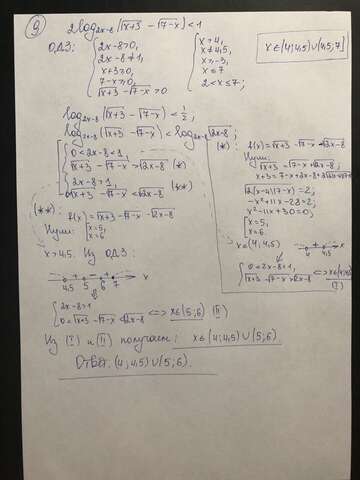 9 2log_{2x-8}(√(x+3) - √(7-x)) < 1
ОДЗ: { 2x-8>0, { x>4,
2x-8≠1, x≠4,5,
x+3≥0, x≥-3,
7-x≥0, x≤7
√(x+3) - √(7-x) > 0 2<x≤7;
x∈(4;4,5)∪(4,5;7]
log_{2x-8}(√(x+3) - √(7-x)) < 1/2;
log_{2x-8}(√(x+3) - √(7-x)) < log_{2x-8}√(2x-8);
[ { 0<2x-8<1,
√(x+3) - √(7-x) > √(2x-8) (*)
{ 2x-8>1,
0<√(x+3) - √(7-x) < √(2x-8) (**)
(*): f(x)=√(x+3) - √(7-x) - √(2x-8)
Нули:
√(x+3) - √(7-x) = √(2x-8)
2(x-4)(7-x)=2;
-x²+11x-28=2;
x²-11x+30=0;
[ x=5,
x=6.
x∈(4;4,5)
4 4,5 x
{ 0<2x-8<1,
√(x+3) - √(7-x) > √(2x-8) (I)
(**) f(x)=√(x+3) - √(7-x) - √(2x-8)
Нули: [ x=5,
x=6.
x>4,5. Из ОДЗ:
4,5 5 6 7 x
{ 2x-8>1
0<√(x+3) - √(7-x) < √(2x-8) ⟺ x∈(5;6) (II)
Из (I) и (II) получаем: x∈(4;4,5)∪(5;6)
Ответ: (4;4,5)∪(5;6).